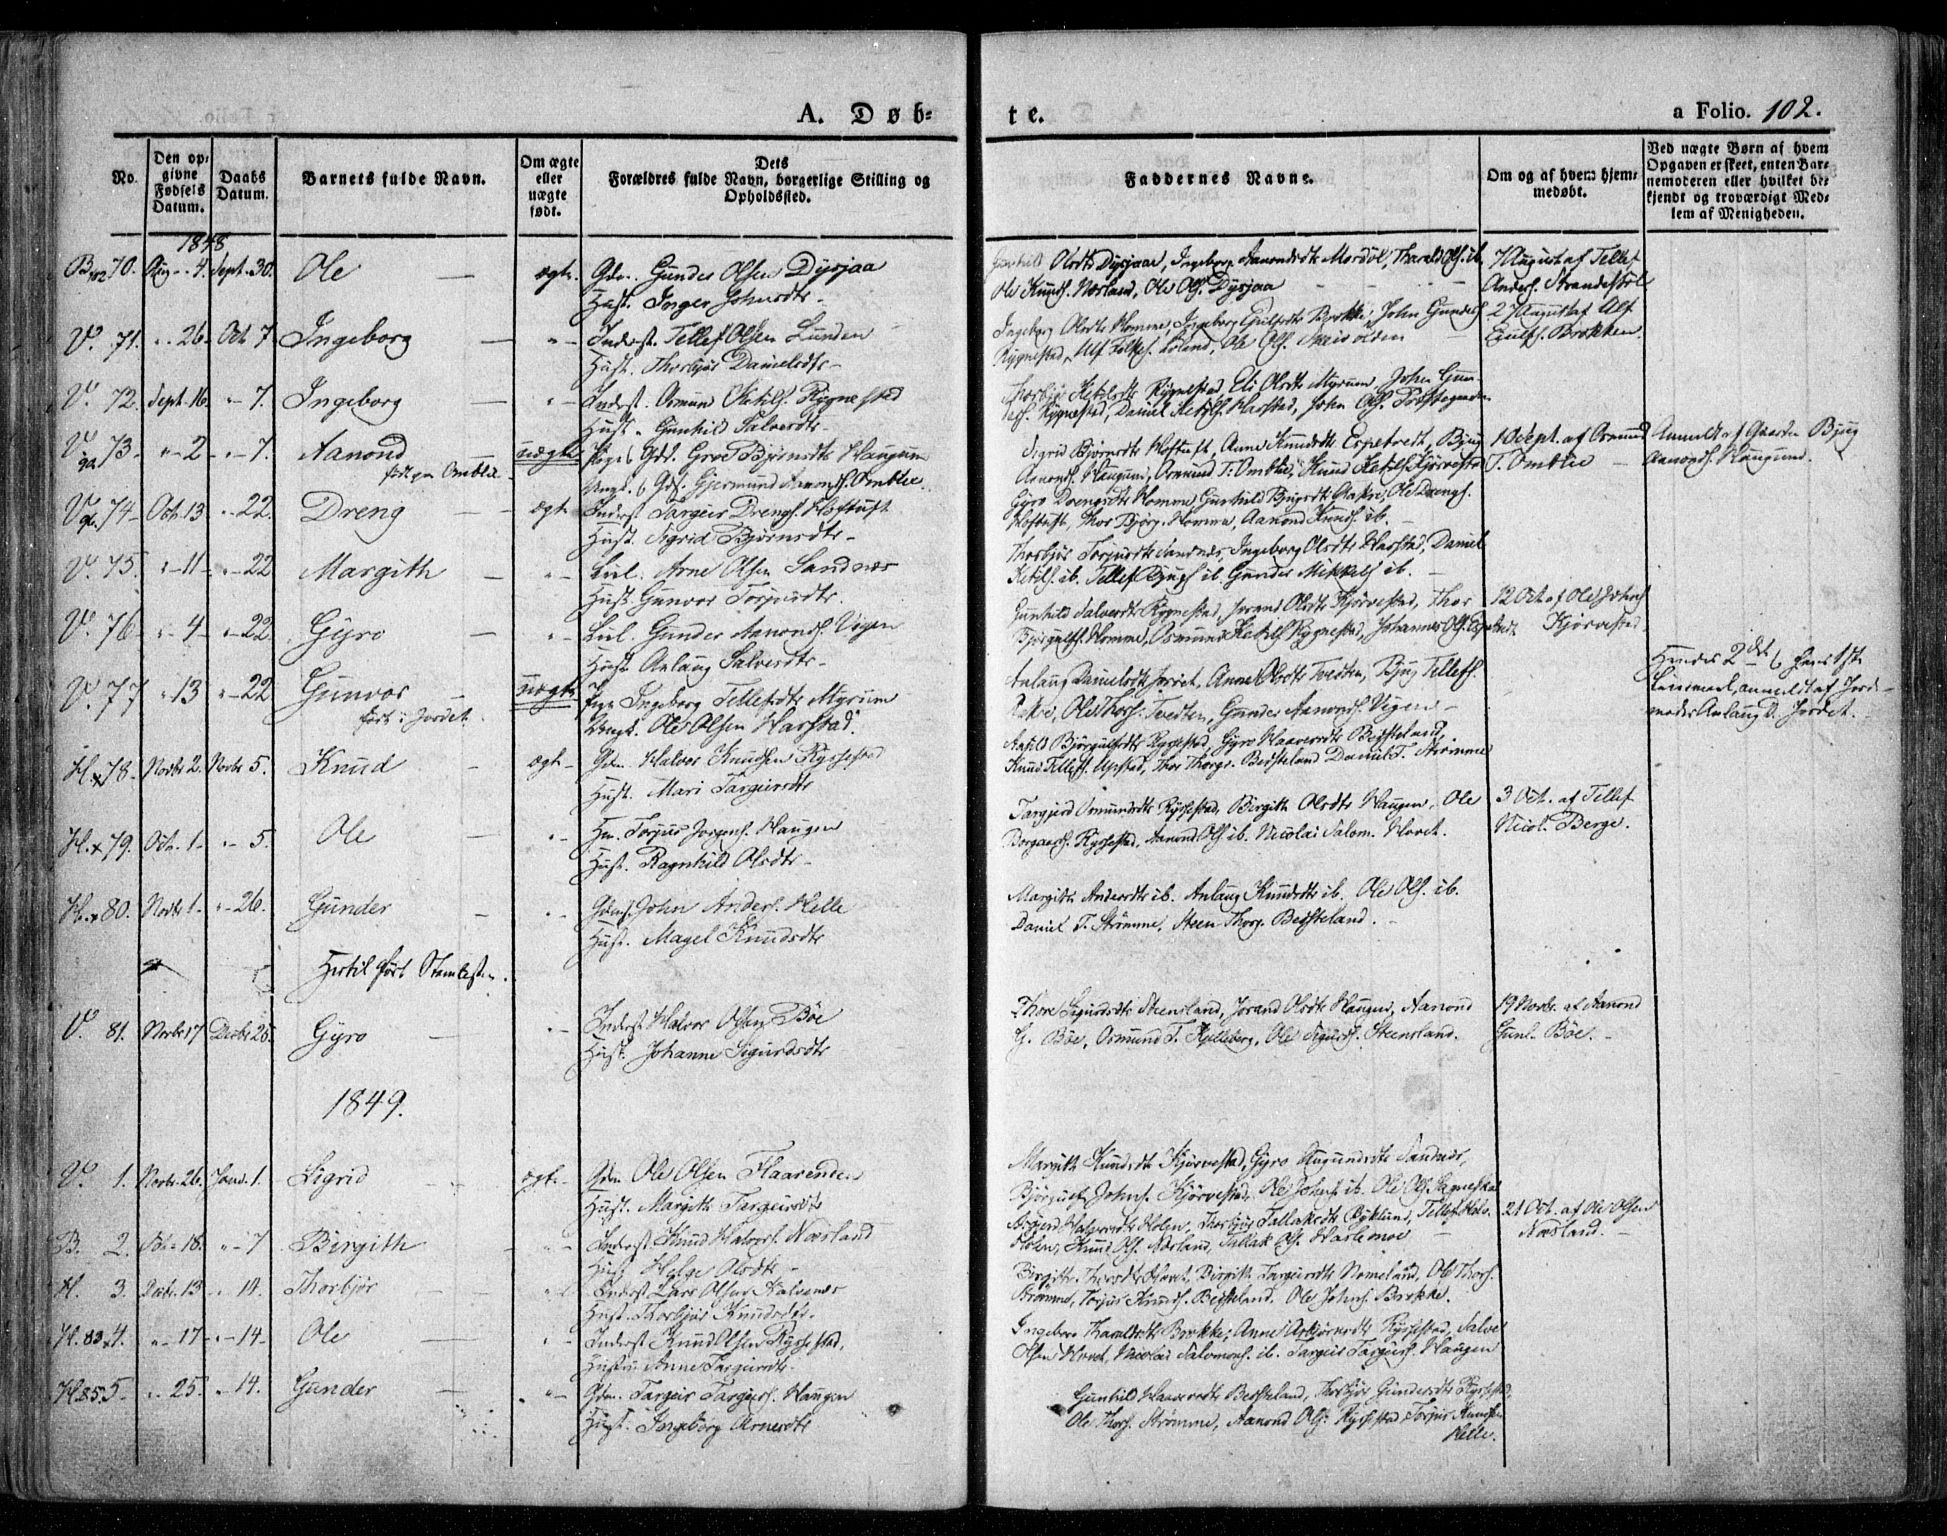 A. Døb= te.
a Folio. 102.
No.
Den op=
givne
Fødsels
Datum.
Daabs
Datum.
Barnets fulde Navn.
Om ægte
eller
uægte
født.
Dets
Forældres fulde Navn, borgerlige Stilling og
Opholdssted.
Faddernes Navne.
Om og af hvem hjem=
medøbt.
Ved uægte Børn af hvem
Opgaven er skeet, enten Bar=
nemoderen eller hvilket be=
kjendt og troværdigt Med=
lem af Menigheden.
1848
70. Aug. 4. Sept. 30. Ole ægte. Gdm. Gunder Olsen Dysjaa
Hust. Inger Johnsdtr
Gunhild Olsdtr Dysjaa, Ingeborg Aanondsdtr Mosdöl, Tharald Ols. ib.
Ole Knuds. Næsland, Ole Ols. Dysjaa
7 August af Tellef
Anders. Strandestöl
V. 71. 26 Oct 7 Ingeborg Inderst. Tellef Olsen Lunden
Hust. Thorbjør Danielsdtr
Ingeborg Olsdtr Homme, Ingeborg Eiulfsdtr Brokke, John Gunders.
Rygnestad, Ulf Folkes. Loland, Ole Ols.
27 August af Alf
Eiulfs. Brokken.
V. 72. Sept. 16. 7. Ingeborg Inderst. Osmund Ketils. Rygnestad
Hust. Gunhild Salvesdtr
Thorbjør Ketelsdtr Rygnestad, Eli Olsdtr Myrum, John Gun=
ders. Rygnestad, Daniel Ketils. Harstad, John Ols.
V. 73 2 7. Aanond uægte Pige Groe Bjørnsdtr Haugum
født paa Omblie
Ungk. Gjermund Aanonds. Omblie.
Sigrid Bjørnsdtr Hoftuft, Anne Knudsdtr Espetvedt, Bjug
Aanonds. Haugum, Osmund T. Omblie, Knud Ketils. Kjørvestad
10 Sept. af Osmund
T. Omblie
Anmeldt af Bjug
Aanonds. Haugum.
V. 74 Oct. 13 22. Dreng ægt. Inderst Targeir Drengs. Hoftuft
Hust. Sigrid Bjørnsdtr
Gyro Drengsdtr Homme, Gunhild Ole Drengs.
Hoftuft, Thor Bjørg. Homme, Aanond Knuds. ib.
V. 75. 11 22 Margith Arne Olsen Sandnes
Hust. Gunvor Torjusdtr.
Thorbjør Torjusdtr Sandnes, Ingeborg Olsdtr Harstad, Daniel
Ketils. ib. Tellef Bjugs. ib. Gunder Mikkels. ib.
V. 76 4 22. Gyro Gunder Aanonds. Vigen
Hust. Anlaug Salvesdtr
Gunhild Salvesdtr Rygnestad, Jorand Olsdtr Kjørvestad, Thor
Bjørgulfs. Homme, Osmund Ketils. Rygnestad, Johannes Ols. Espetvedt
12 Oct. af Ole Johns.
Kjørvestad.
V. 77 13 22 Gunvor uægte Pige Ingeborg Tellefsdtr Myrum
født i Jordet.
Ungk. Ole Olsen Harstad.
Anlaug Danielsdtr Jordet, Anne Olsdtr Tvedten, Bjug Tellefs.
Ole Thors. Tvedten, Gunder Aanonds. Vigen
Hendes 2det hans 1ste
Leiermaal, anmeldt af Jorde=
moder Anlaug D. Jordet.
H. 78. Novbr 2. Novbr 5. Knud ægt. Gdm. Halvor Knudsen Rysstad
Hust. Mari Targeirsdtr
Aasild Bjørgulfsdtr Rysstad, Gyro Haavordtr Besteland,
Knud Tellefs. Upstad, Thor Thorgr. Besteland Daniel T. Strømme
H. 79. Oct. 1 5. Ole Torjus Jorgens. Haugen
Hust. Ragnhild Olsdtr
Targjerd Osmundsdtr Rysstad, Birgith Olsdtr Haugen, Ole
Borgars. Rysstad, Aanond Ols. ib. Nicolai Salom. Hovet.
3 Oct. af Tellef
Nicol. Berge.
H. 80. Novbr 1 26. Gunder John Anders. Helle
Hust. Magel Knudsdtr
Margith Andersdtr ib. Anlaug Knudsdtr ib. Ole Ols. ib.
Daniel T. Strømme, Steen Thorg. Besteland.
Hertil ført
V. 81. Novbr 17 Decbr 25. Gyro Inderst Halvor Olsen Bøe
Hust. Johanne Sigurdsdtr
Thore Sigurdsdtr Steensland, Jorand Olsdtr Haugen, Aanond
G. Bøe, Osmund T. Kjelleberg, Ole Sigurds. Steensland.
19 Novbr. af Aanond
Gunl. Bøe.
1849.
V. 1. Novbr. 26. Janr. 1. Sigrid ægt. Gdm Ole Olsen Flaarenden
Hust. Margith Targeirsdtr
Margith Knudsdtr Kjørvestad, Gyro Augundsdtr Sandnes,
Bjørgulf Johns. Kjørvestad, Ole Johns. ib. Ole Ols.
B. 2. Oct. 18. 7 Birgith Inderst. Knud Halvors. Næsland
Hust. Helge Olsdtr
Halvorsdtr Holen, Thorbjør Tallaksdtr Byklum, Tellef Halv.
Holen, Knud Ols. Næsland, Tallak Ols. Hartemoe
21 Oct. af Ole Olsen
Næsland.
H. 3. Decbr. 13 14. Thorbjør Inderst. Lars Olsen Kalvenes
Hust. Thorbjør Knudsdtr.
Birgith Thorsdtr Hovet, Birgith Targeirsdtr Nomeland, Ole Thors.
Strømme, Torjus Knuds. Besteland. Ole Johns. Brokke.
H. 83 4. 17 14. Ole Inderst Knud Olsen Rysstad,
Hustru Anne Targeirsdtr
Ingeborg Tharaldsdtr Brokke, Anne Asbjørnsdtr Rysstad, Salve
Olsen Hovet, Nicolai Salomons. ib. Targeir Targeirs. Haugen
H. 85 5 25. 14. Gunder Gdm. Targeir Targeirs. Haugen
Hust. Ingeborg Arnesdtr
Gunhild Haavordtr Besteland, Thorbjør Gundersdtr Rysstad,
Ole Thors. Strømme, Aanond Ols. Rysstad Torjus Knudsen
Helle.